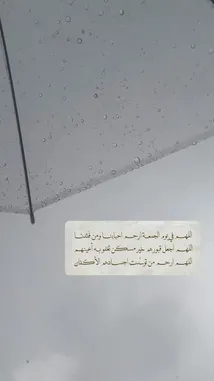 اللهم في يوم الجمعة ارحم احبابنا ومن فقدنا
اللهم اجعل قبورهم خير مسكن تغفو به أعينهم
اللهم ارحم من توسدت اجسادهم الأكفان